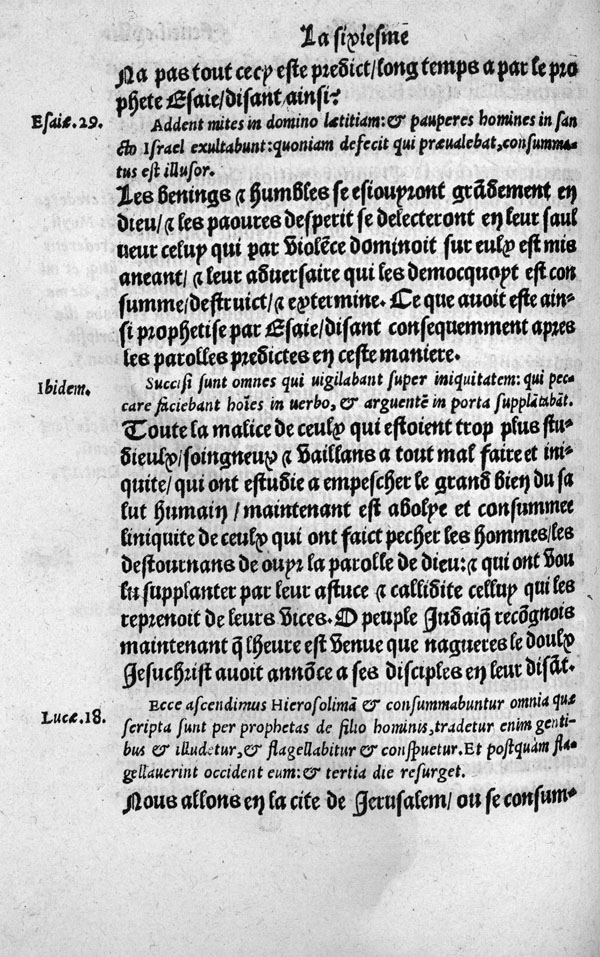 La sixiesme
Na pas tout cecy este predict/long temps a par le pro
phete Esaie/disant ainsi?
Esaiæ.29.
Addent mites in domino lætitiam: & pauperes homines in san
cto Israel exultabunt: quoniam defecit qui præualebat, consumma-
tus est illusor.
Les benings & humbles se esiouyront grãdement en
dieu/& les paoures desperit se delecteront en leur saul
ueur celuy qui par violẽce dominoit sur eulx est mis
aneant/& leur aduersaire qui les democquoyt est con
summe/destruict/& extermine. Ce que auoit este ain-
si prophetise par Esaie/disant consequemment apres
les parolles predictes en ceste maniere.
Ibidem.
Succisi sunt omnes qui uigilabant super iniquitatem: qui pec-
care faciebant hoĩes in uerbo, & arguentẽ in porta supplãtabãt.
Toute la malice de ceulx qui estoient trop plus stu-
dieulx/soingneux & vaillans a tout mal faire et ini-
quite/qui ont estudie a empescher le grand bien du sa
lut humain/maintenant est abolye et consummee
liniquite de ceulx qui ont faict pecher les hommes/les
destournans de ouyr la parolle de dieu:& qui ont vou
lu supplanter par leur astuce & callidite celluy qui les
reprenoit de leurs vices. O peuple Judaiq̃ recõgnois
maintenant q̃ lheure est venue que nagueres le doulx
Jesuchrist auoit annõce a ses disciples en leur disãt.
Lucæ.18.
Ecce ascendimus Hierosolimã & consummabuntur omnia quæ
scripta sunt per prophetas de filio hominis, tradetur enim genti-
bus & illudetur, & flagellabitur & conspuetur. Et postquàm fla-
gellauerint occident eum: & tertia die resurget.
Nous allons en la cite de Jerusalem/ou se consum-